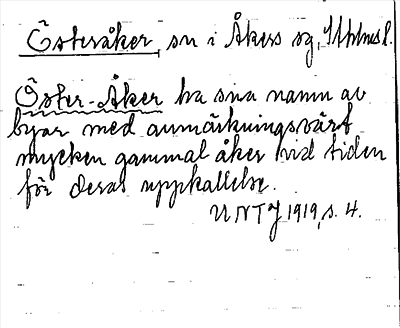 Österåker, sn i Åkers sg, Sthlms l.
Öster-Åker ha sina namn av
byar med anmärkningsvärt
mycken gammal åker vid tiden
för deras uppkallelse.
UNTJ 1919, s. 4.